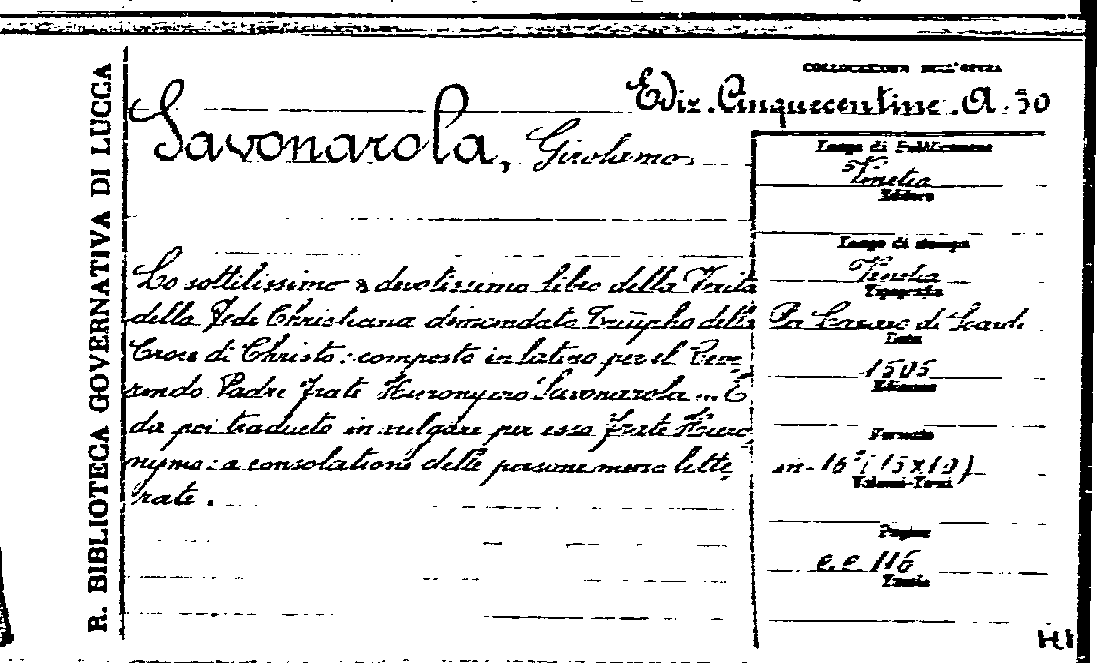 R. BIBLIOTECA GOVERNATIVA DI LUCCA
COLLOCAZIONE DELL'OPERA
Ediz. Cinquecentine. A. 50
Savonarola, Girolamo
Lo sottilissimo & devotissimo libro della Verita
della Fede Christiana dimandato Triũpho della
Croce di Christo: composto in latino per el Reve,
rendo Padre frate Hieronymo Savonarola ... E
da poi traducto in vulgare per esso frate Hiero,
nymo: a consolatione delle persone meno lette,
rate.
Luogo di Pubblicazione
Venetia
Editore
Luogo di stampa
Venetia
Tipografia
Per Lazaro di Soardi
Data
1505
Edizione
Formato
in-16° (15x10)
Volumi-Tomi
Pagine
c.c 116
Tavole